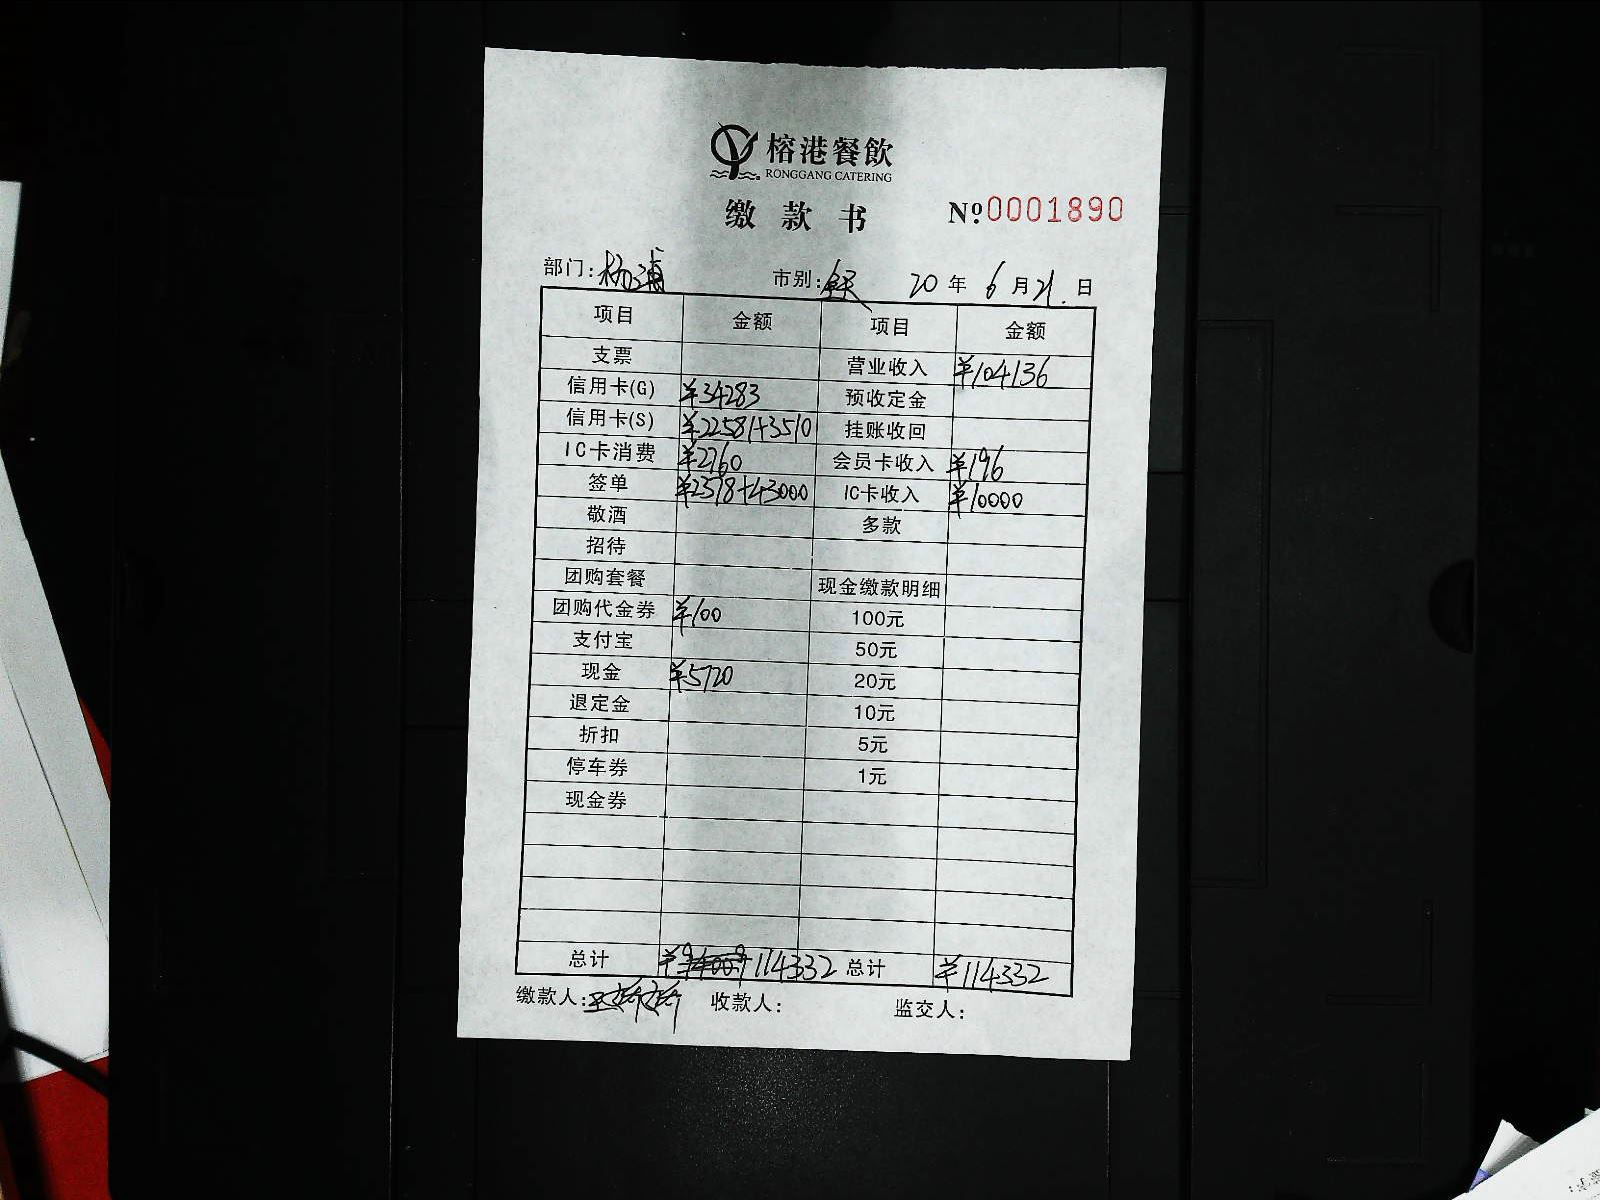 榕港餐飲
RONGGANG CATERING
缴款书 №0001890
部门:杨浦 市别:全天 20年6月21日
项目 金额 项目 金额
支票 营业收入 ¥104136
信用卡(G) ¥34283 预收定金
信用卡(S) ¥22581+3510 挂账收回
IC卡消费 ¥2760 会员卡收入 ¥196
签单 ¥2378+43000 IC卡收入 ¥10000
敬酒 多款
招待
团购套餐 现金缴款明细
团购代金券 ¥100 100元
支付宝 50元
现金 ¥5720 20元
退定金 10元
折扣 5元
停车券 1元
现金券
总计 ¥114332 总计 ¥114332
缴款人: 收款人: 监交人: